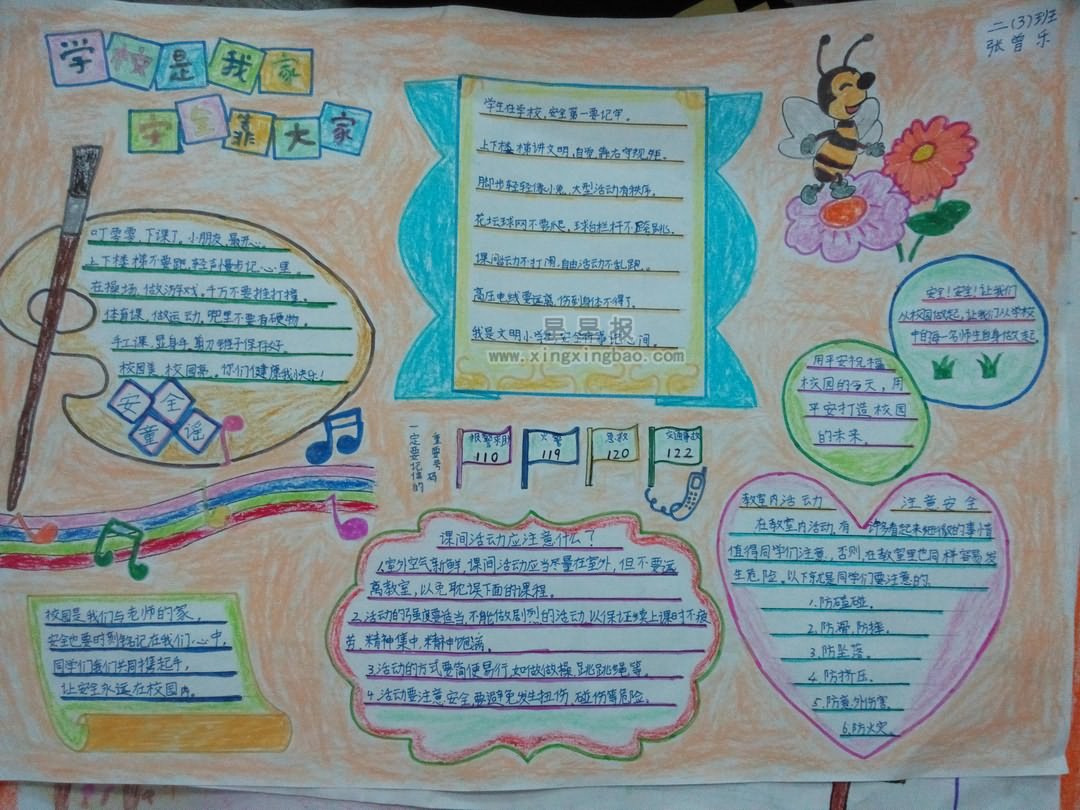 学校是我家
安全靠大家
二(3)班
张曾乐
叮零零,下课了,小朋友,最开心。
上下楼梯不要跑,轻声慢步记心里。
在操场,做游戏,千万不要推打撞。
体育课,做运动,兜里不要有硬物。
手工课,显身手,剪刀
校园美,校园亮,你们健康我快乐!
安全
童谣
学生在学校,安全第一要记牢。
上下楼梯讲文明,自觉靠右守规矩。
脚步轻轻像小兔,大型活动有秩序。
花坛球网不要爬,球台栏杆不跨跳。
课间活动不打闹,自由活动不乱跑。
高压电线要远离,伤到身体不得了。
我是文明小学生,安全
星星报
www.xingxingbao.com
安全!安全!让我们
从校园做起,让我们从学校
中的每一名师生自身做起。
用平安祝福
校园的今天,用
平安打造校园
的未来。
一定要记住的
重要号码
报警求助
110
火警
119
急救
120
交通事故
122
校园是我们与老师的家,
安全也要时刻铭记在我们心中,
同学们我们共同携起手,
让安全永远在校园内。
课间活动应注意什么?
1.室外空气新鲜,课间活动应当尽量在室外,但不要远
离教室,以免耽误下面的课程。
2.活动的强度要适当,不能做剧烈的活动,以保证续上课时不疲
劳、精神集中、精神饱满。
3.活动的方式要简便易行,如做做操、跳跳绳等。
4.活动要注意安全,要避免发生扭伤、碰伤等危险。
教室内活动 注意安全
在教室内活动,有许多看起来细微的事情
值得同学们注意,否则,在教室里也同样容易发
生危险。以下就是同学们要注意的.
1.防磕碰。
2.防滑、防摔。
3.防坠落。
4.防挤压。
5.防意外伤害。
6.防火灾。